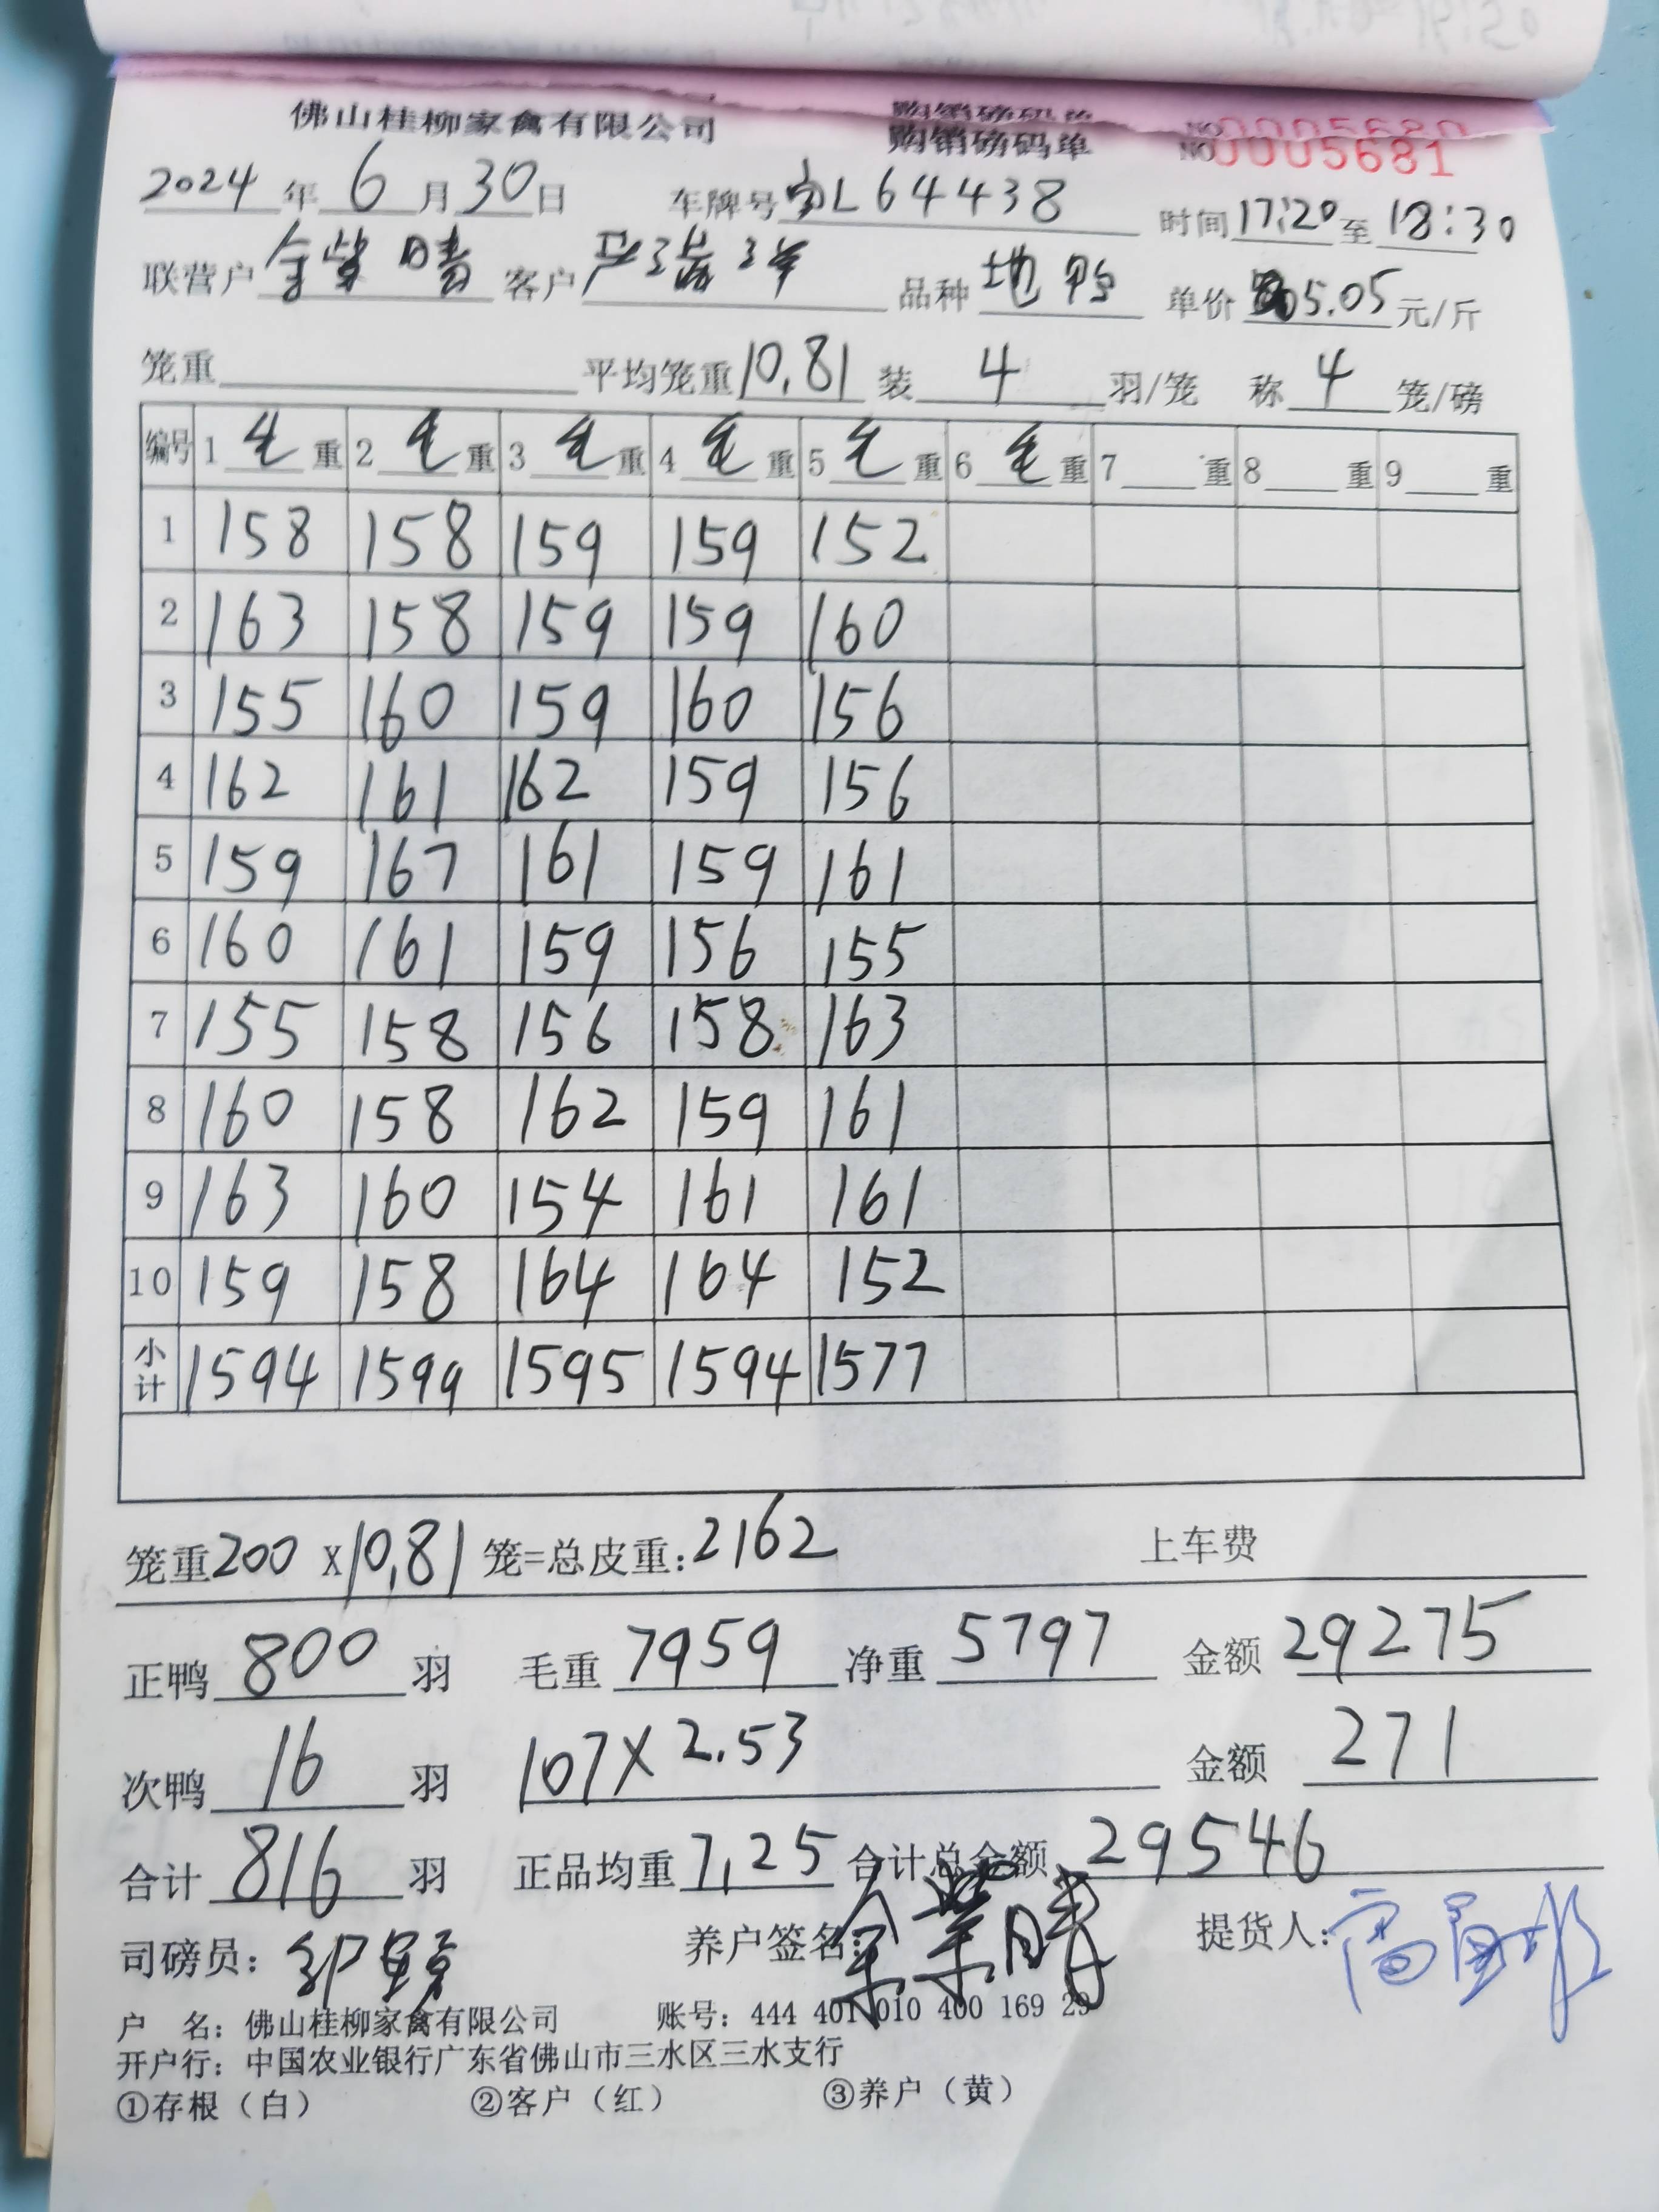 佛山桂柳家禽有限公司 购销磅码单 NO 0005681
2024年6月30日 车牌号 L64438 时间17:20至18:30
联营户 客户 品种 地鸭 单价 5.05元/斤
笼重 平均笼重10.81 装4羽/笼 称4笼/磅
编号 1毛重 2毛重 3毛重 4毛重 5毛重 6毛重 7重 8重 9重
1 158 158 159 159 152
2 163 158 159 159 160
3 155 160 159 160 156
4 162 161 162 159 156
5 159 167 161 159 161
6 160 161 159 156 155
7 155 158 156 158 163
8 160 158 162 159 161
9 163 160 154 161 161
10 159 158 164 164 152
小计 1594 1599 1595 1594 1577
笼重200 X10.81笼=总皮重:2162 上车费
正鸭800羽 毛重7959净重5797 金额29275
次鸭16羽 107X2.53 金额271
合计816羽 正品均重7.25合计总金额29546
司磅员: 养户签名: 提货人:
户 名:佛山桂柳家禽有限公司 账号:444 401 010 400 169 29
开户行:中国农业银行广东省佛山市三水区三水支行
①存根(白) ②客户(红) ③养户(黄)